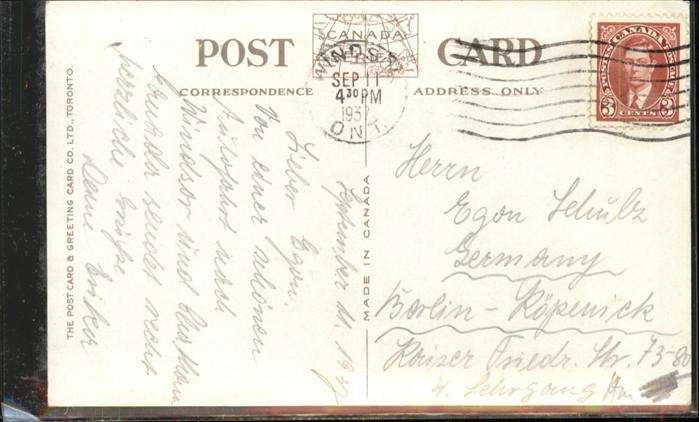 POST CARD
CANADA
WINDSOR
SEP 11
4 30 PM
193
ONT.
POSTES CANADA POSTAGE
3 3
CENTS
CORRESPONDENCE
ADDRESS ONLY
September 11. 1937
Lieber Egon,
Von einer schönen
Autofahrt nach
Windsor und Chatham
Kanada sendet recht
herzliche Grüße
Deine
MADE IN CANADA
THE POST CARD & GREETING CARD CO. LTD., TORONTO.
Herrn
Egon Schulz
Germany
Berlin-Köpenick
Kaiser Friedr. Str. 73-80
4. Lehrgang